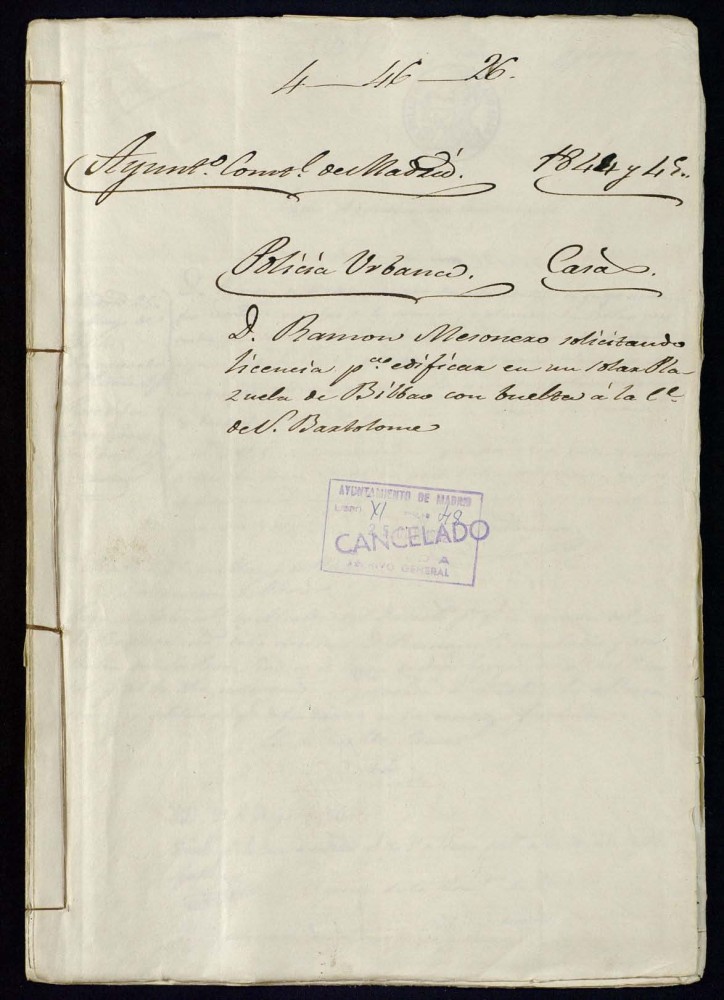 4–46–26.
Ayunt.º Const.l de Madrid. 1844 y 45.
Policia Urbana. Casas.
D. Ramon Mesonero solicitando
licencia p.a edificar en un solar Pla-
zuela de Bilbao con buelta á la C.e
de S. Bartolome
AYUNTAMIENTO DE MADRID
LIBRO XI 48
CANCELADO
ARCHIVO GENERAL